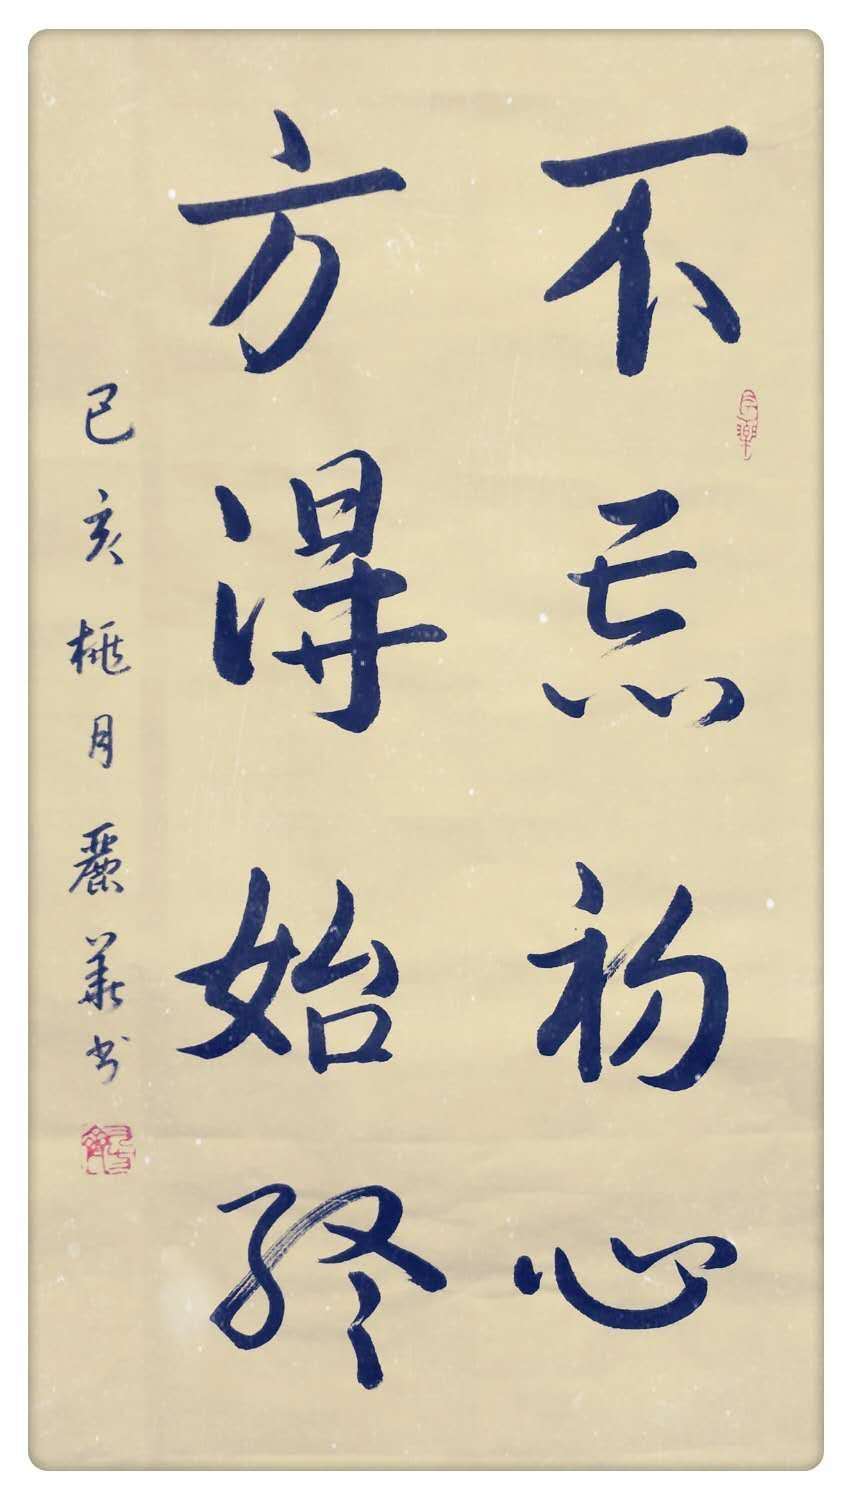 不忘初心
方得始终
己亥桃月麗華书